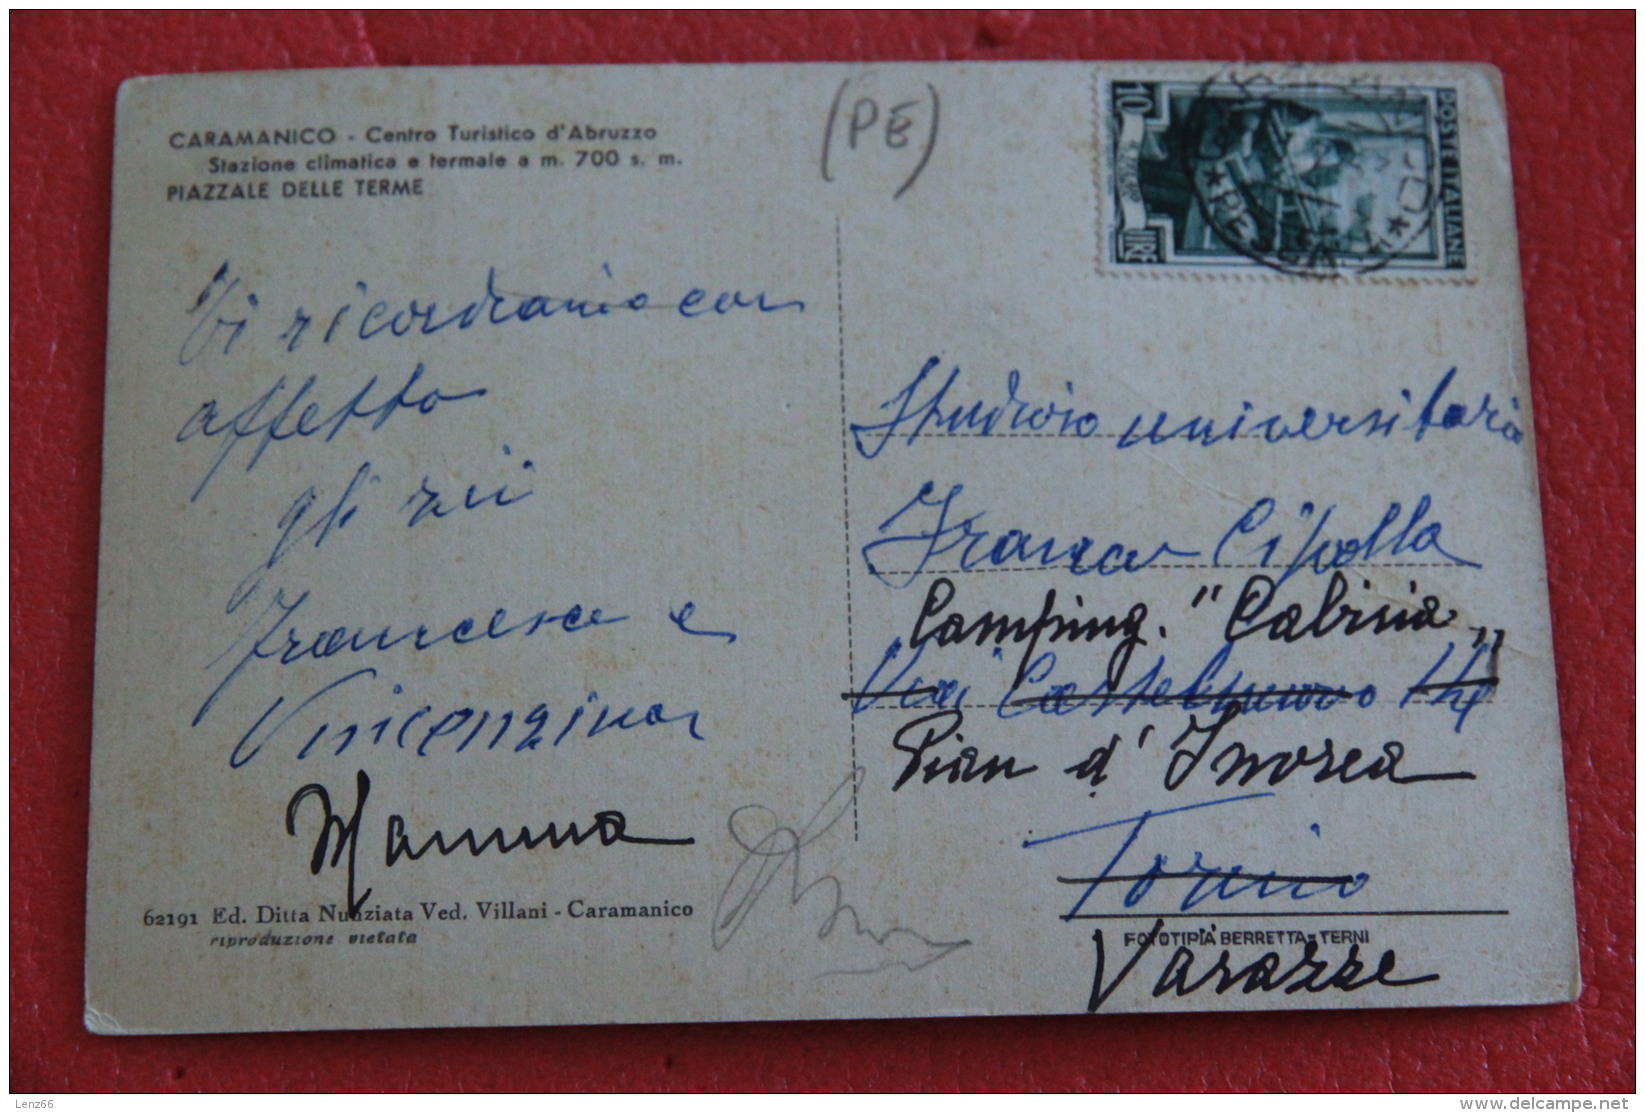 CARAMANICO - Centro Turistico d'Abruzzo
Stazione climatica e termale a m. 700 s. m.
PIAZZALE DELLE TERME
(PE)
10
LIRE
POSTE ITALIANE
Vi ricordiamo con
affetto
gli zii
Francesca e
Vincenzina
Mamma
62191 Ed. Ditta Nunziata Ved. Villani - Caramanico
riproduzione vietata
Studioso universitario
Franco Cipolla
Camping. "Cabina"
Via Castelnuovo
Pian d'Invrea
Torino
FOTOTIPIA BERRETTA - TERNI
Varazze
Lenz66
www.delcampe.net